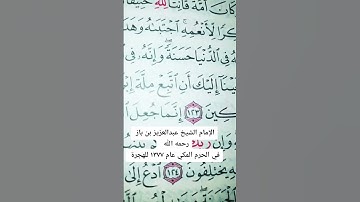 كَانَ أُمَّةً قَانِتًا لِلَّهِ حَنِيفًا
كِرًا لِأَنْعُمِهِ اجْتَبَاهُ وَهَدَ
فِي الدُّنْيَا حَسَنَةً وَإِنَّهُ فِي
يْنَا إِلَيْكَ أَنِ اتَّبِعْ مِلَّةَ إِبْ
كِينَ ١٢٣ إِنَّمَا جُعِلَ ا
الإمام الشيخ عبدالعزيز بن باز
رحمه الله
في الحرم المكي عام ١٣٧٧ للهجرة
وَإِنَّ رَبَّكَ
يَخْتَلِفُونَ ١٢٤ ادْعُ إِلَى